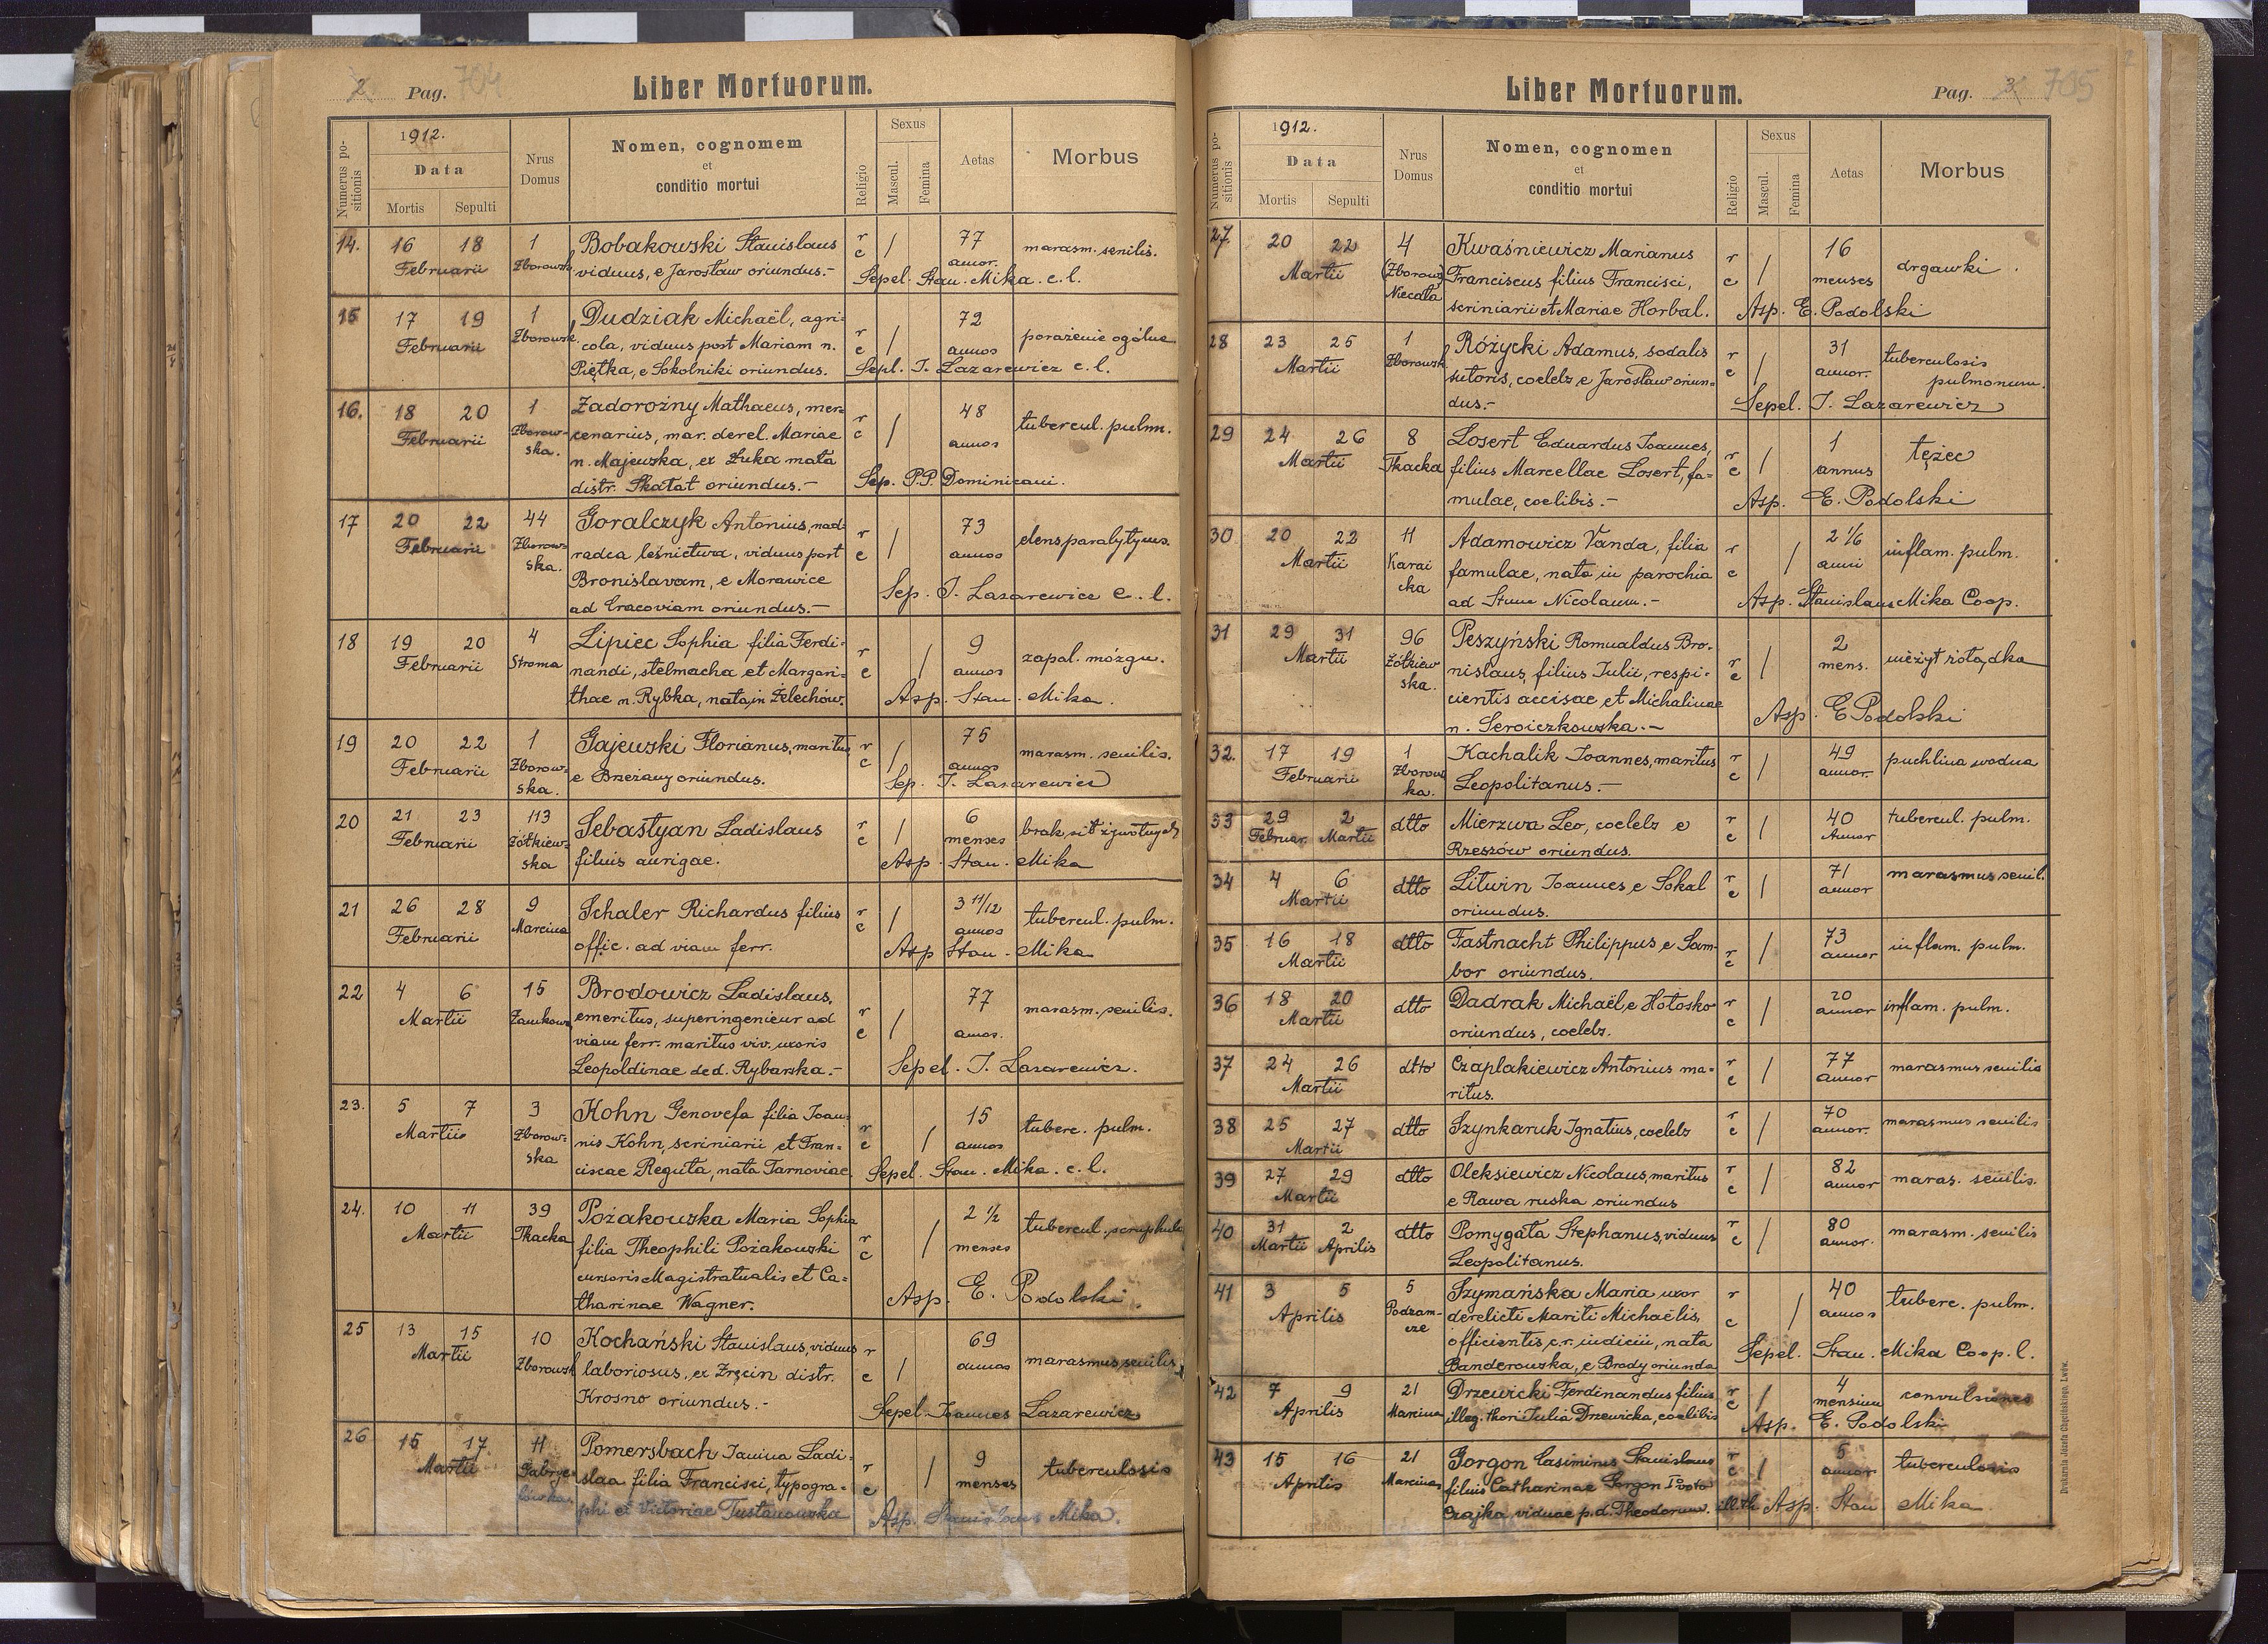 2 Pag. 704
Liber Mortuorum.
Numerus positionis
1912.
Data
Mortis Sepulti
Nrus Domus
Nomen, cognomem
et
conditio mortui
Religio
Sexus
Mascul. Femina
Aetas
Morbus
14. 16 18 1 Bobakowski Stanislaus r / 77 marasm. senilis.
Februarii Zborowsk viduus, e Jarosław oriundus.- c annor.
Sepel. Stan. Mika. c. l.
15 17 19 1 Dudziak Michaël, agri- 72
Februarii Zborowsk. cola, viduus post Mariam n. r c / annos porażenie ogólne
Piętka, e Sokolniki oriundus. Sepl. I. Lazarewicz c. l.
16. 18 20 1 Zadorożny Mathaeus, mer- 48
Februarii Zborow- cenarius, mar. derel. Mariae r c / annos tubercul. pulm.
ska. n. Majewska, ex Łuka mała
distr. Skałat oriundus.- Sep. P.P. Dominicani.
17 20 22 44 Goralczyk Antonius, nad- 73
Februarii Zborow- radca leśnictwa, viduus post r c / annos
ska. Bronislavam, e Morawice
ad Cracoviam oriundus.- Sep. I. Lazarewicz c. l.
18 19 20 4 Lipiec Sophia filia Ferdi- 9
Februarii Stroma nandi, stelmacha et Margari- r c / annos zapal. mózgu.
thae n. Rybka, nata in Żelechów. Asp. Stan. Mika.
19 20 22 1 Gajewski Florianus, maritus, r / 75 marasm. senilis.
Februarii Zborow- e Brzeżany oriundus. c annos
ska. Sep. I. Lazarewicz
20 21 23 113 Sebastyan Ladislaus r / 6 brak sił żywotnych
Februarii Żółkiew- filius aurigae. c menses
ska Asp. Stan. Mika
21 26 28 9 Schaler Richardus filius r / 3 11/12 tubercul. pulm.
Februarii Marcina offic. ad viam ferr. c annos
Asp Stan. Mika
22 4 6 15 Brodowicz Ladislaus, 77
Martii Zamkowa emeritus, superingenieur ad r c / annos. marasm. senilis.
viam ferr. maritus viv. uxoris
Leopoldinae de d. Rybarska.- Sepel. I. Lazarewicz.
23. 5 7 3 Kohn Genovefa filia Joan- 15
Martii Zborow- nis Kohn, scriniarii et Fran- r c / annos tuberc. pulm.
ska ciscae Reguła, nata Tarnoviae Sepel. Stan. Mika. c. l.
24. 10 11 39 Pożakowska Maria Sophia 2 1/2
Martii Tkacka filia Theophili Pożakowski r c / menses tubercul. scrophul.
cursoris Magistratualis et Ca-
tharinae Wagner. Asp. E. Podolski.
25 13 15 10 Kochański Stanislaus, viduus r 69
Martii Zborowsk laboriosus, ex Zręcin distr. c / annos marasmus senilis,
Krosno oriundus.- Sepel. Joannes Lazarewicz
26 15 17 11 Pomersbach Janina Ladi- 9
Martii slaa filia Francisci, typogra- r c / menses tuberculosis
phi et Victoriae Tustanowska Asp. Stanislaus Mika.
Liber Mortuorum.
Pag. 3 705
Numerus positionis
1912.
Data
Mortis Sepulti
Nrus Domus
Nomen, cognomen
et
conditio mortui
Religio
Sexus
Mascul. Femina
Aetas
Morbus
27. 20 22 4 Kwaśniewicz Marianus 16
Martii (Zborows) Franciscus filius Francisci, r c / menses drgawki.
Niecała scriniarii et Mariae Horbal. Asp. E. Podolski
28 23 25 1 Różycki Adamus, sodalis r 31 tuberculosis
Martii Zborowsk. sutoris, coelebs e Jarosław oriun- c / annor. pulmonum.
dus.- Sepel. I. Lazarewicz
29 24 26 8 Losert Eduardus Joannes, 1
Martii Tkacka filius Marcellae Losert, fa- r c / annus tężec
mulae, coelibis.- Asp. E. Podolski
30. 20 22 11 Adamowicz Vanda, filia r 2 1/6 inflam. pulm.
Martii Karai famulae, nata in parochia c / anni
cka ad Stum Nicolaum.- Asp. Stanislaus Mika Coop.
31 29 31 96 Peszyński Romualdus Bro- 2
Martii Żółkiew nislaus, filius Julii, respi- r c / mens. nieżyt żołądka
ska. cientis accisae et Michalinae
n. Seroiczkowska.- Asp. E Podolski
32. 17 19 1 Kachalik Joannes, maritus r / 49 puchlina wodna
Februarii Zborow Leopolitanus.- c annor.
ka.
33 29 2 dtto Mierzwa Leo, coelebs e r / 40 tubercul. pulm.
Februar. Martii Rzeszów oriundus. c Annor
34 4 6 dtto Litwin Joannes e Sokal r / 71 marasmus senil.
Martii oriundus. c annor
35 16 18 dtto Fastnacht Philippus e Sam- r / 73 inflam. pulm.
Martii bor oriundus. c annor
36 18 20 dtto Dadrak Michaël, e Hołosko r / 20 inflam. pulm.
Martii oriundus, coelebs. c annor
37 24 26 dtto Czaplakiewicz Antonius ma- r / 77 marasmus senilis
Martii ritus. c annor
38 25 27 dtto Szynkaruk Ignatius, coelebs r / 70 marasmus senilis
Martii c annor.
39 27 29 dtto Oleksiewicz Nicolaus, maritus r / 82 maras. senilis.
Martii e Rawa ruska oriundus c annor
40 31 2 dtto Pomygała Stephanus, viduus r / 80 marasm. senilis
Martii Aprilis Leopolitanus. c annor.
41 3 5 5 Szymańska Maria uxor r 40
Aprilis Podzam- derelicti mariti Michaëlis, c / annos tuberc. pulm.
cze officientis c.r. iudicii, nata
Banderowska, e Brody oriunda Sepel. Stan. Mika Coop. l.
42 7 9 21 Drzewicki Ferdinandus filius r / 4 convulsiones
Aprilis Marcina illeg. thori Julia Drzewicka, coelibis c mensium
Asp. E. Podolski
43 15 16 21 Gorgon Casimirus Stanislaus r / 5 tuberculosis
Aprilis Marcina filius Catharinae Gorgon I voto c annor
Czajka viduae p. d. Theodorum. ill. th. Asp. Stan Mika
Lwów.